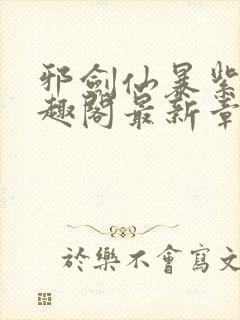 邪劍仙暴紫
趣閣最新章
於樂不會寫文